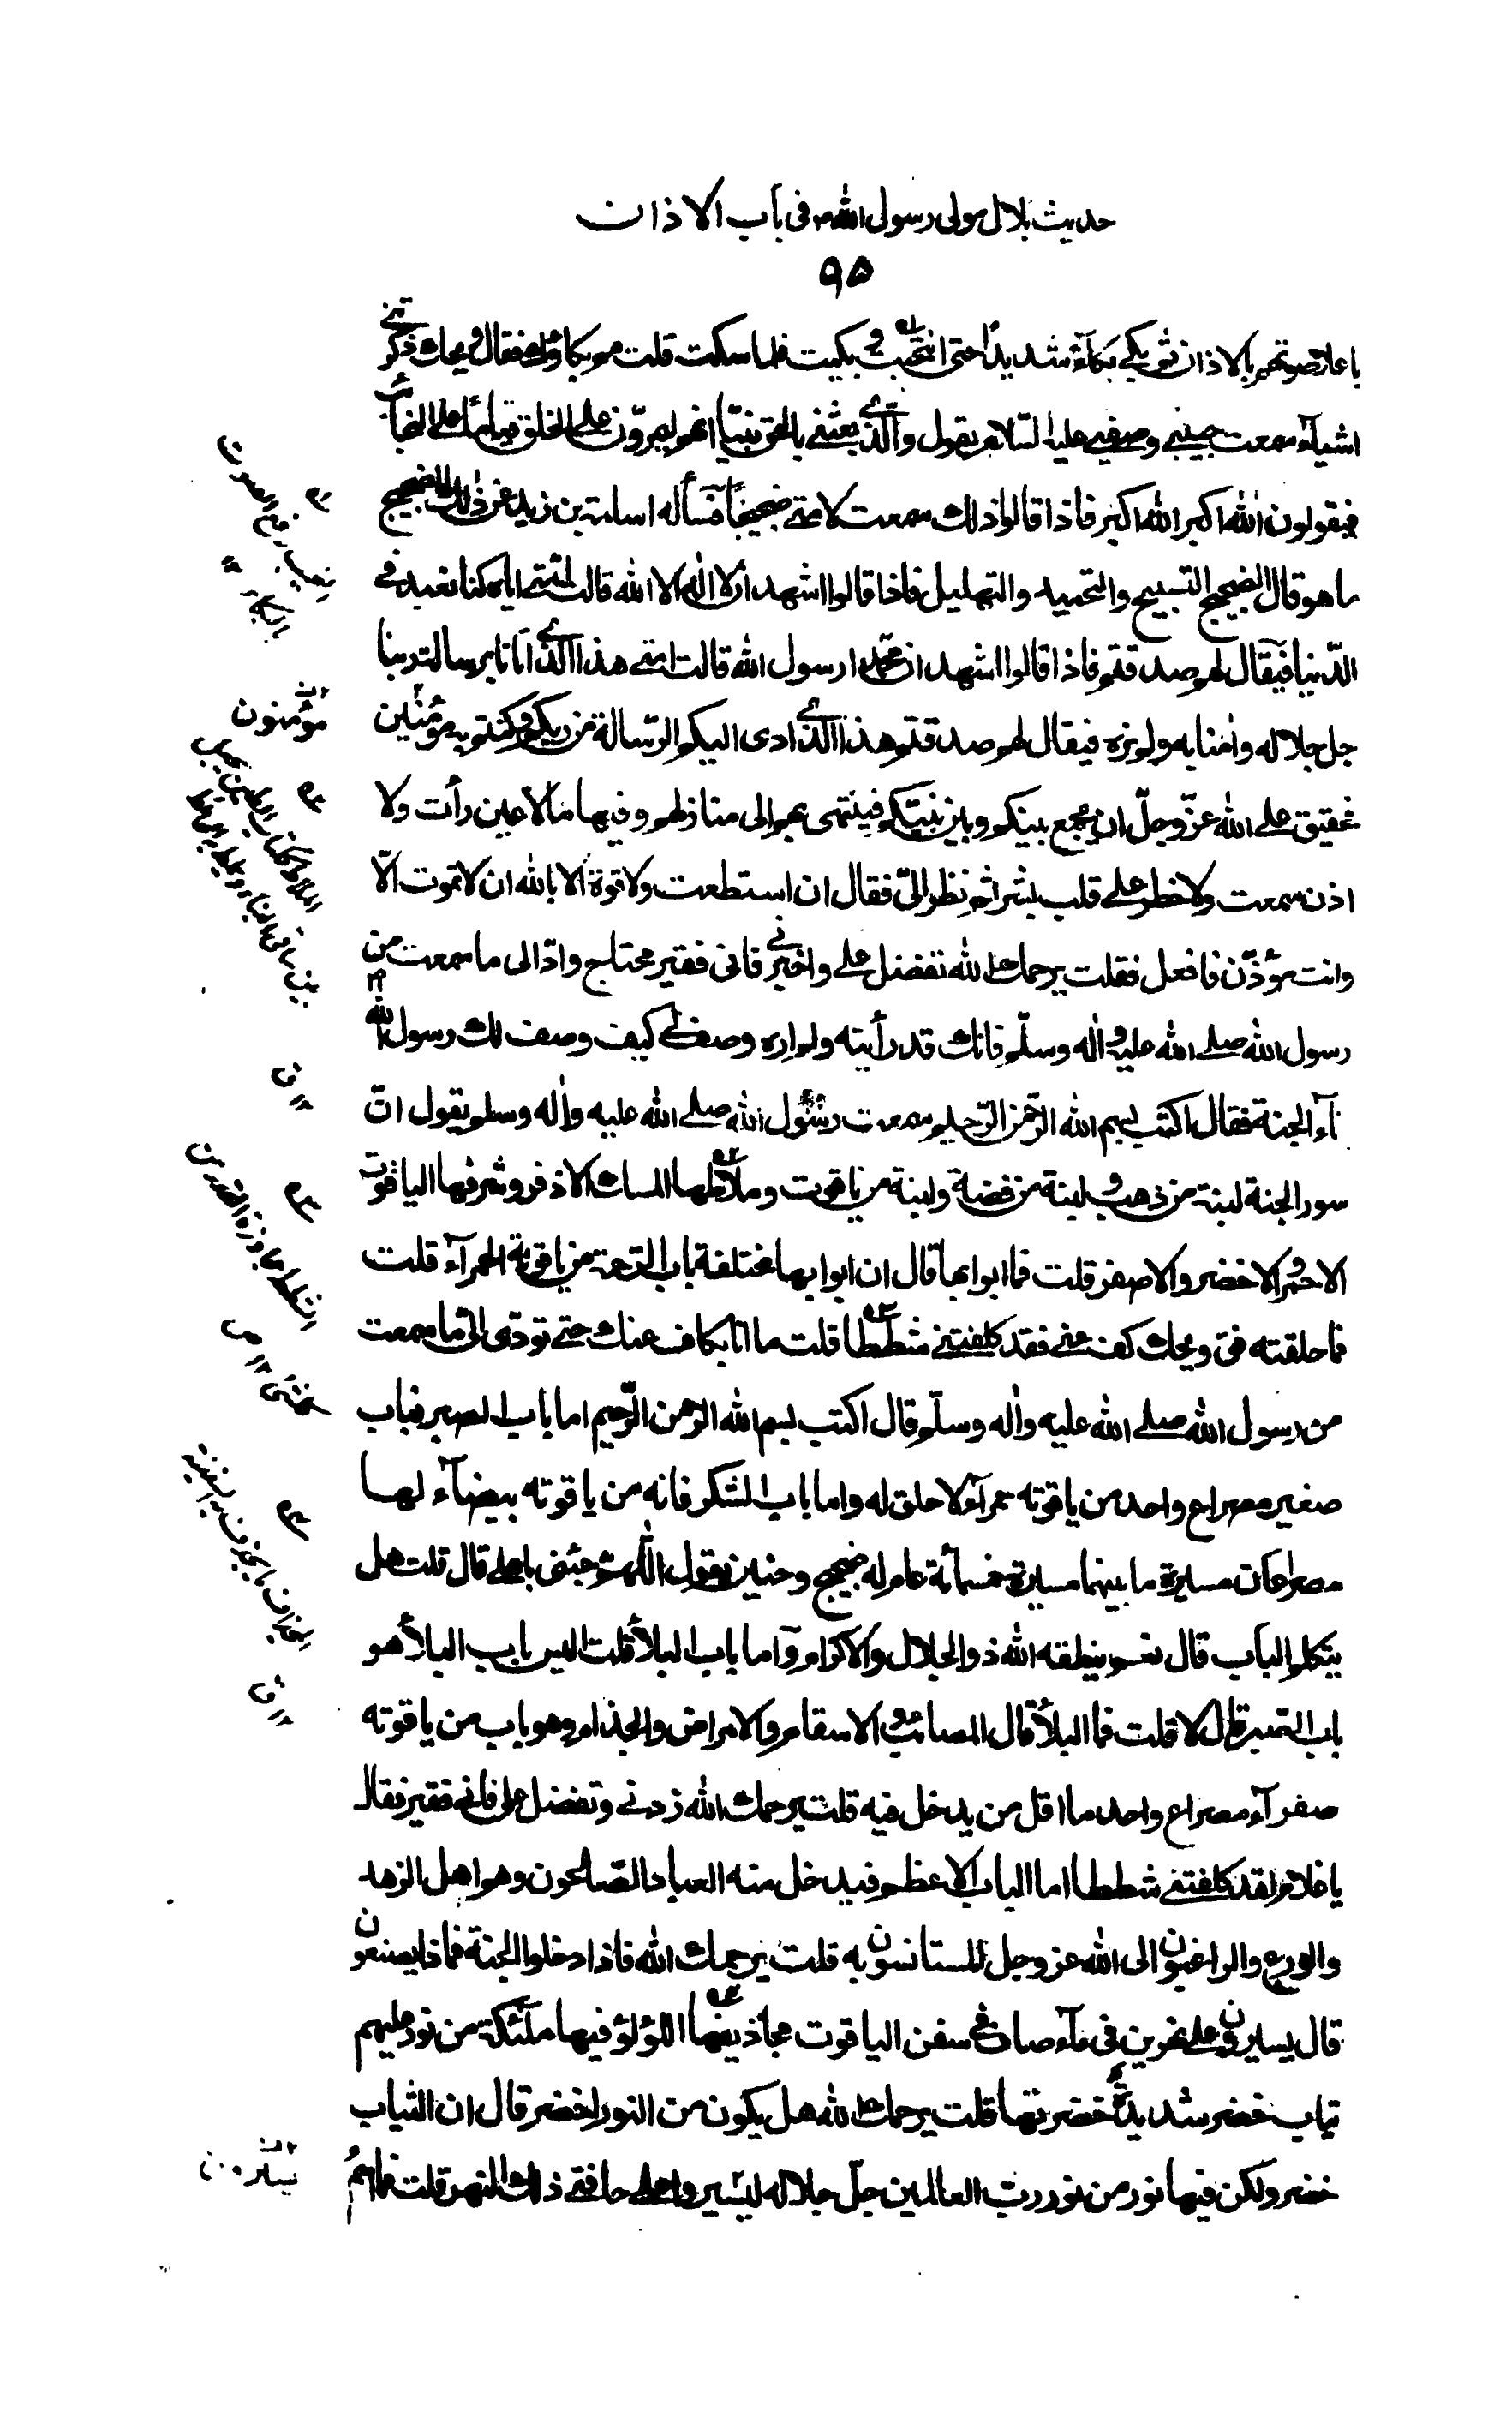 حديث بلال مولى رسول الله ص فى باب الاذان
٩٥
باعلا صوتهم بالاذان ثم بكى بكاء شديدا حتى انتحب و بكيت فلما سكت قلت مم بكاؤك فقال ويحك ذكرتنى
اشياء سمعت حبيبى وصفيى عليه السلام يقول والذى بعثنى بالحق نبيا انهم ليمرون على الخلق قياما على النجائب
فيقولون الله اكبر الله اكبر فاذا قالوا ذلك سمعت لامتى ضجيجا فسأله اسامة بن زيد عن ذلك الضجيج
ما هو قال الضجيج التسبيح والتحميد والتهليل فاذا قالوا اشهد ان لا اله الا الله قالت امتى اياه كنا نعبد فى
الدنيا فيقال لهم صدقتم فاذا قالوا اشهد ان محمدا رسول الله قالت امتى هذا الذى اتانا برسالة ربنا
جل جلاله وامنا به ولم نره فيقال لهم صدقتم هذا الذى ادى اليكم الرسالة من ربكم وكنتم به مؤمنين
فحقيق على الله عز وجل ان يجمع بينكم وبين نبيكم فينتهى بهم الى منازلهم وفيها ما لا عين رأت ولا
اذن سمعت ولا خطر على قلب بشر ثم نظر الى فقال ان استطعت ولا قوة الا بالله ان لا تموت الا
وانت مؤذن فافعل فقلت يرحمك الله تفضل على واخبرنى فانى فقير محتاج واد الى ما سمعت من
رسول الله صلى الله عليه واله وسلم فانك قد رأيته ولم اره وصف لى كيف وصف لك رسول الله
بناء الجنة فقال اكتب بسم الله الرحمن الرحيم سمعت رسول الله صلى الله عليه واله وسلم يقول ان
سور الجنة لبنة من ذهب و لبنة من فضة ولبنة من ياقوت وملاطها المسك الاذفر وشرفها الياقوت
الاحمر و الاخضر والاصفر قلت فما ابوابها قال ان ابوابها مختلفة باب الرحمة من ياقوتة الحمراء قلت
فما حلقته فق ويحك كف عنى فقد كلفتنى شططا قلت ما انا بكاف عنك حتى تودى الى ما سمعت
من رسول الله صلى الله عليه واله وسلم قال اكتب بسم الله الرحمن الرحيم اما باب الصبر فباب
صغير مصراع واحد من ياقوته حمراء لا حلق له واما باب الشكر فانه من ياقوته بيضاء لها
مصراعان مسيرة ما بينهما مسيرة خمسمائة عام له ضجيج وحنين يقول اللهم جئنى باهلى قال قلت هل
يتكلم الباب قال نعم ينطقه الله ذو الجلال والاكرام واما باب البلاء قلت اليس باب البلاء هو
باب الصبر قال لا قلت فما البلاء قال المصائب و الاسقام والامراض والجذام وهو باب من ياقوته
صفراء مصراع واحد ما اقل من يدخل فيه قلت يرحمك الله زدنى وتفضل على فانى فقير فقال
يا غلام لقد كلفتنى شططا اما الباب الاعظم فيدخل منه العباد الصالحون وهم اهل الزهد
والورع والراغبون الى الله عز وجل المستانسون به قلت يرحمك الله فاذا دخلوا الجنة فماذا يصنعون
قال يسيرون على نهرين فى ماء صاف فى سفن الياقوت مجاذيفها اللؤلؤ فيها ملئكة من نور عليهم
ثياب خضر شديدة خضرتها قلت يرحمك الله هل يكون من النور اخضر قال ان الثياب
خضر ولكن فيها نور من نور رب العالمين جل جلاله ليسيروا على حافتى ذلك النهر قلت فما اسم
مؤمنون
١٢ ق